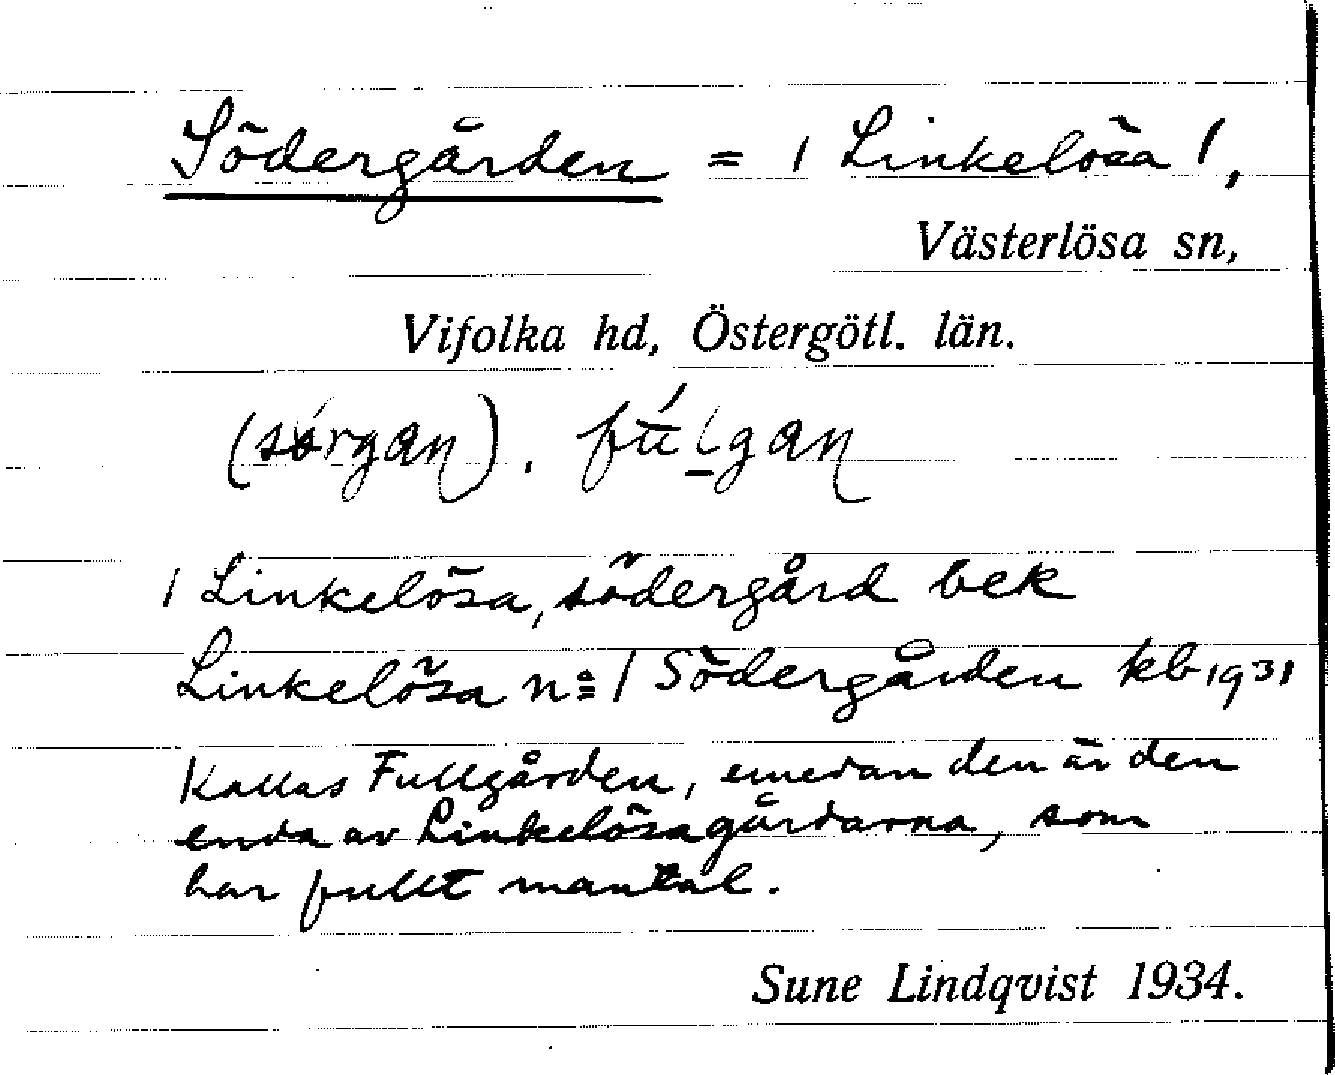 Södergården = 1 Linkelösa 1,
Västerlösa sn,
Vifolka hd, Östergötl. län.
1 Linkelösa, södergård bek
Linkelösa n:o 1 Södergården kb 1931
Kallas Fullgården, emedan den är den
enda av Linkelösagårdarna, som
har fullt mantal.
Sune Lindqvist 1934.